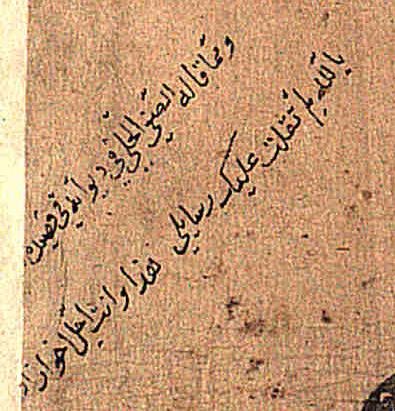 ومما قاله الصفي الحلي في ديوانه في
بالله لم ثقلت عليك رسايلي هذا وانت اجل اخوان